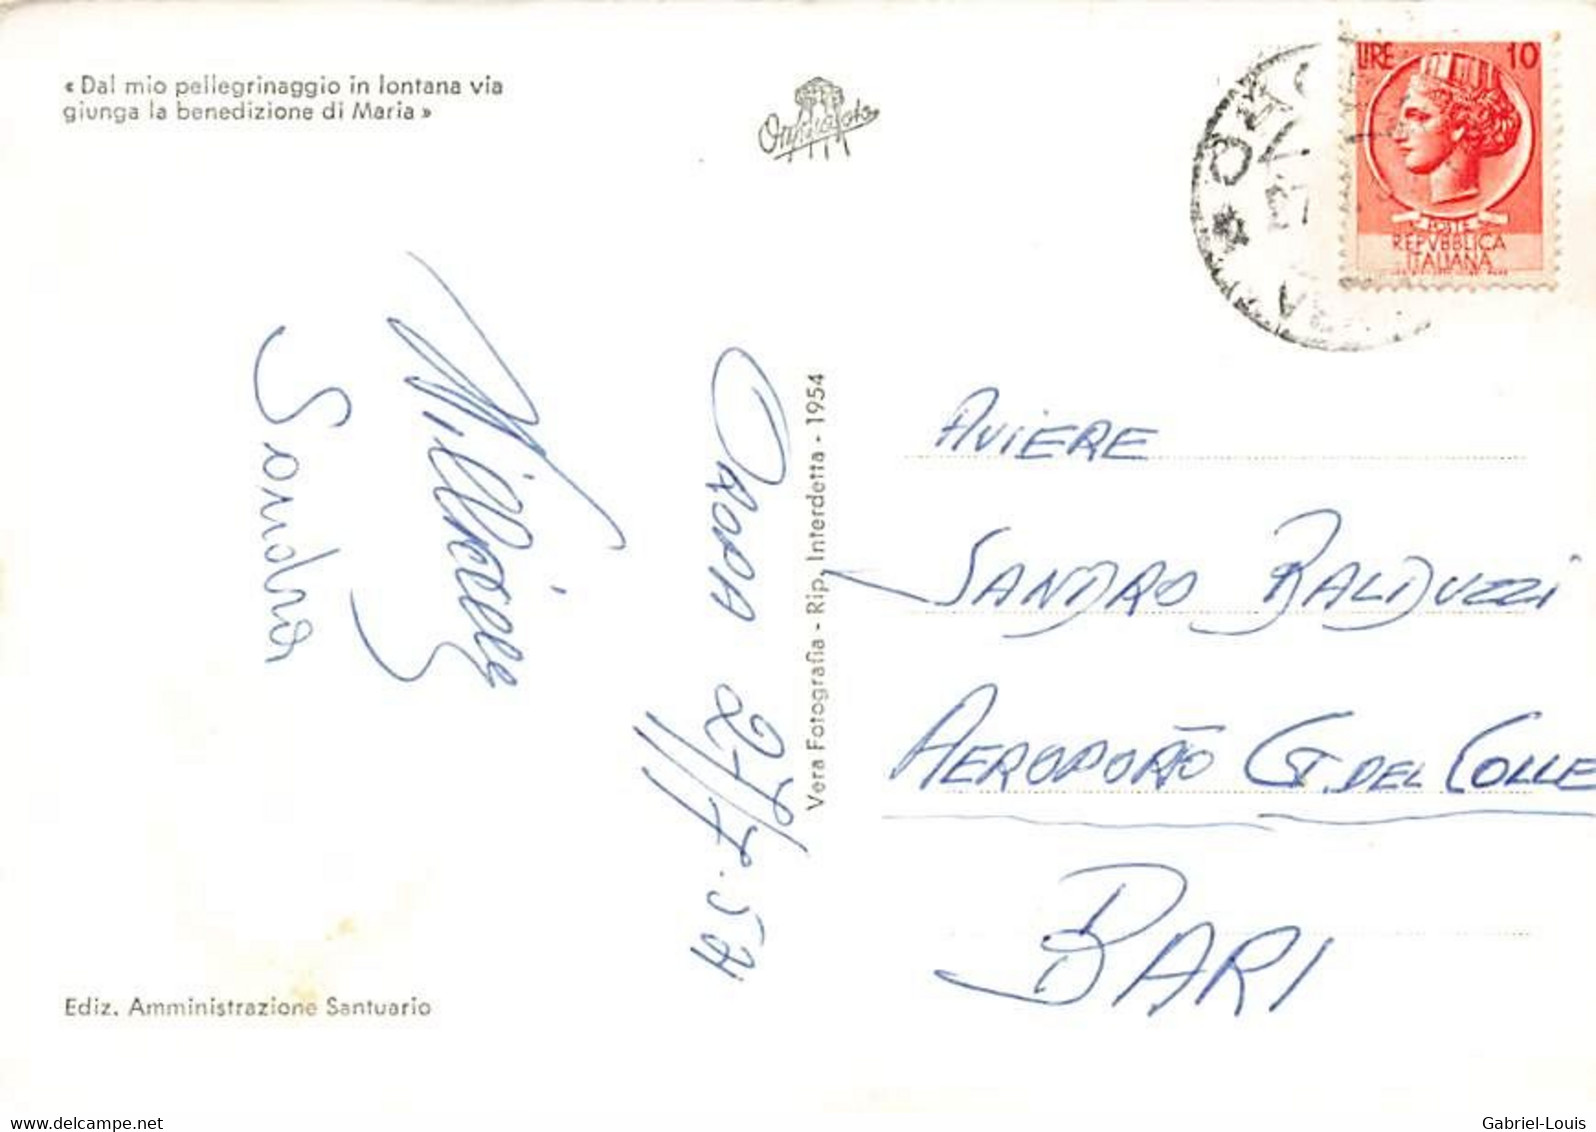 « Dal mio pellegrinaggio in lontana via
giunga la benedizione di Maria »
LIRE 10
POSTE
REPVBBLICA
ITALIANA
Sandro
OROPA 27/7.54
Vera Fotografia - Rip. Interdetta - 1954
AVIERE
SANDRO BALDUZZI
AEROPORTO G. DEL COLLE
BARI
Ediz. Amministrazione Santuario
www.delcampe.net
Gabriel-Louis